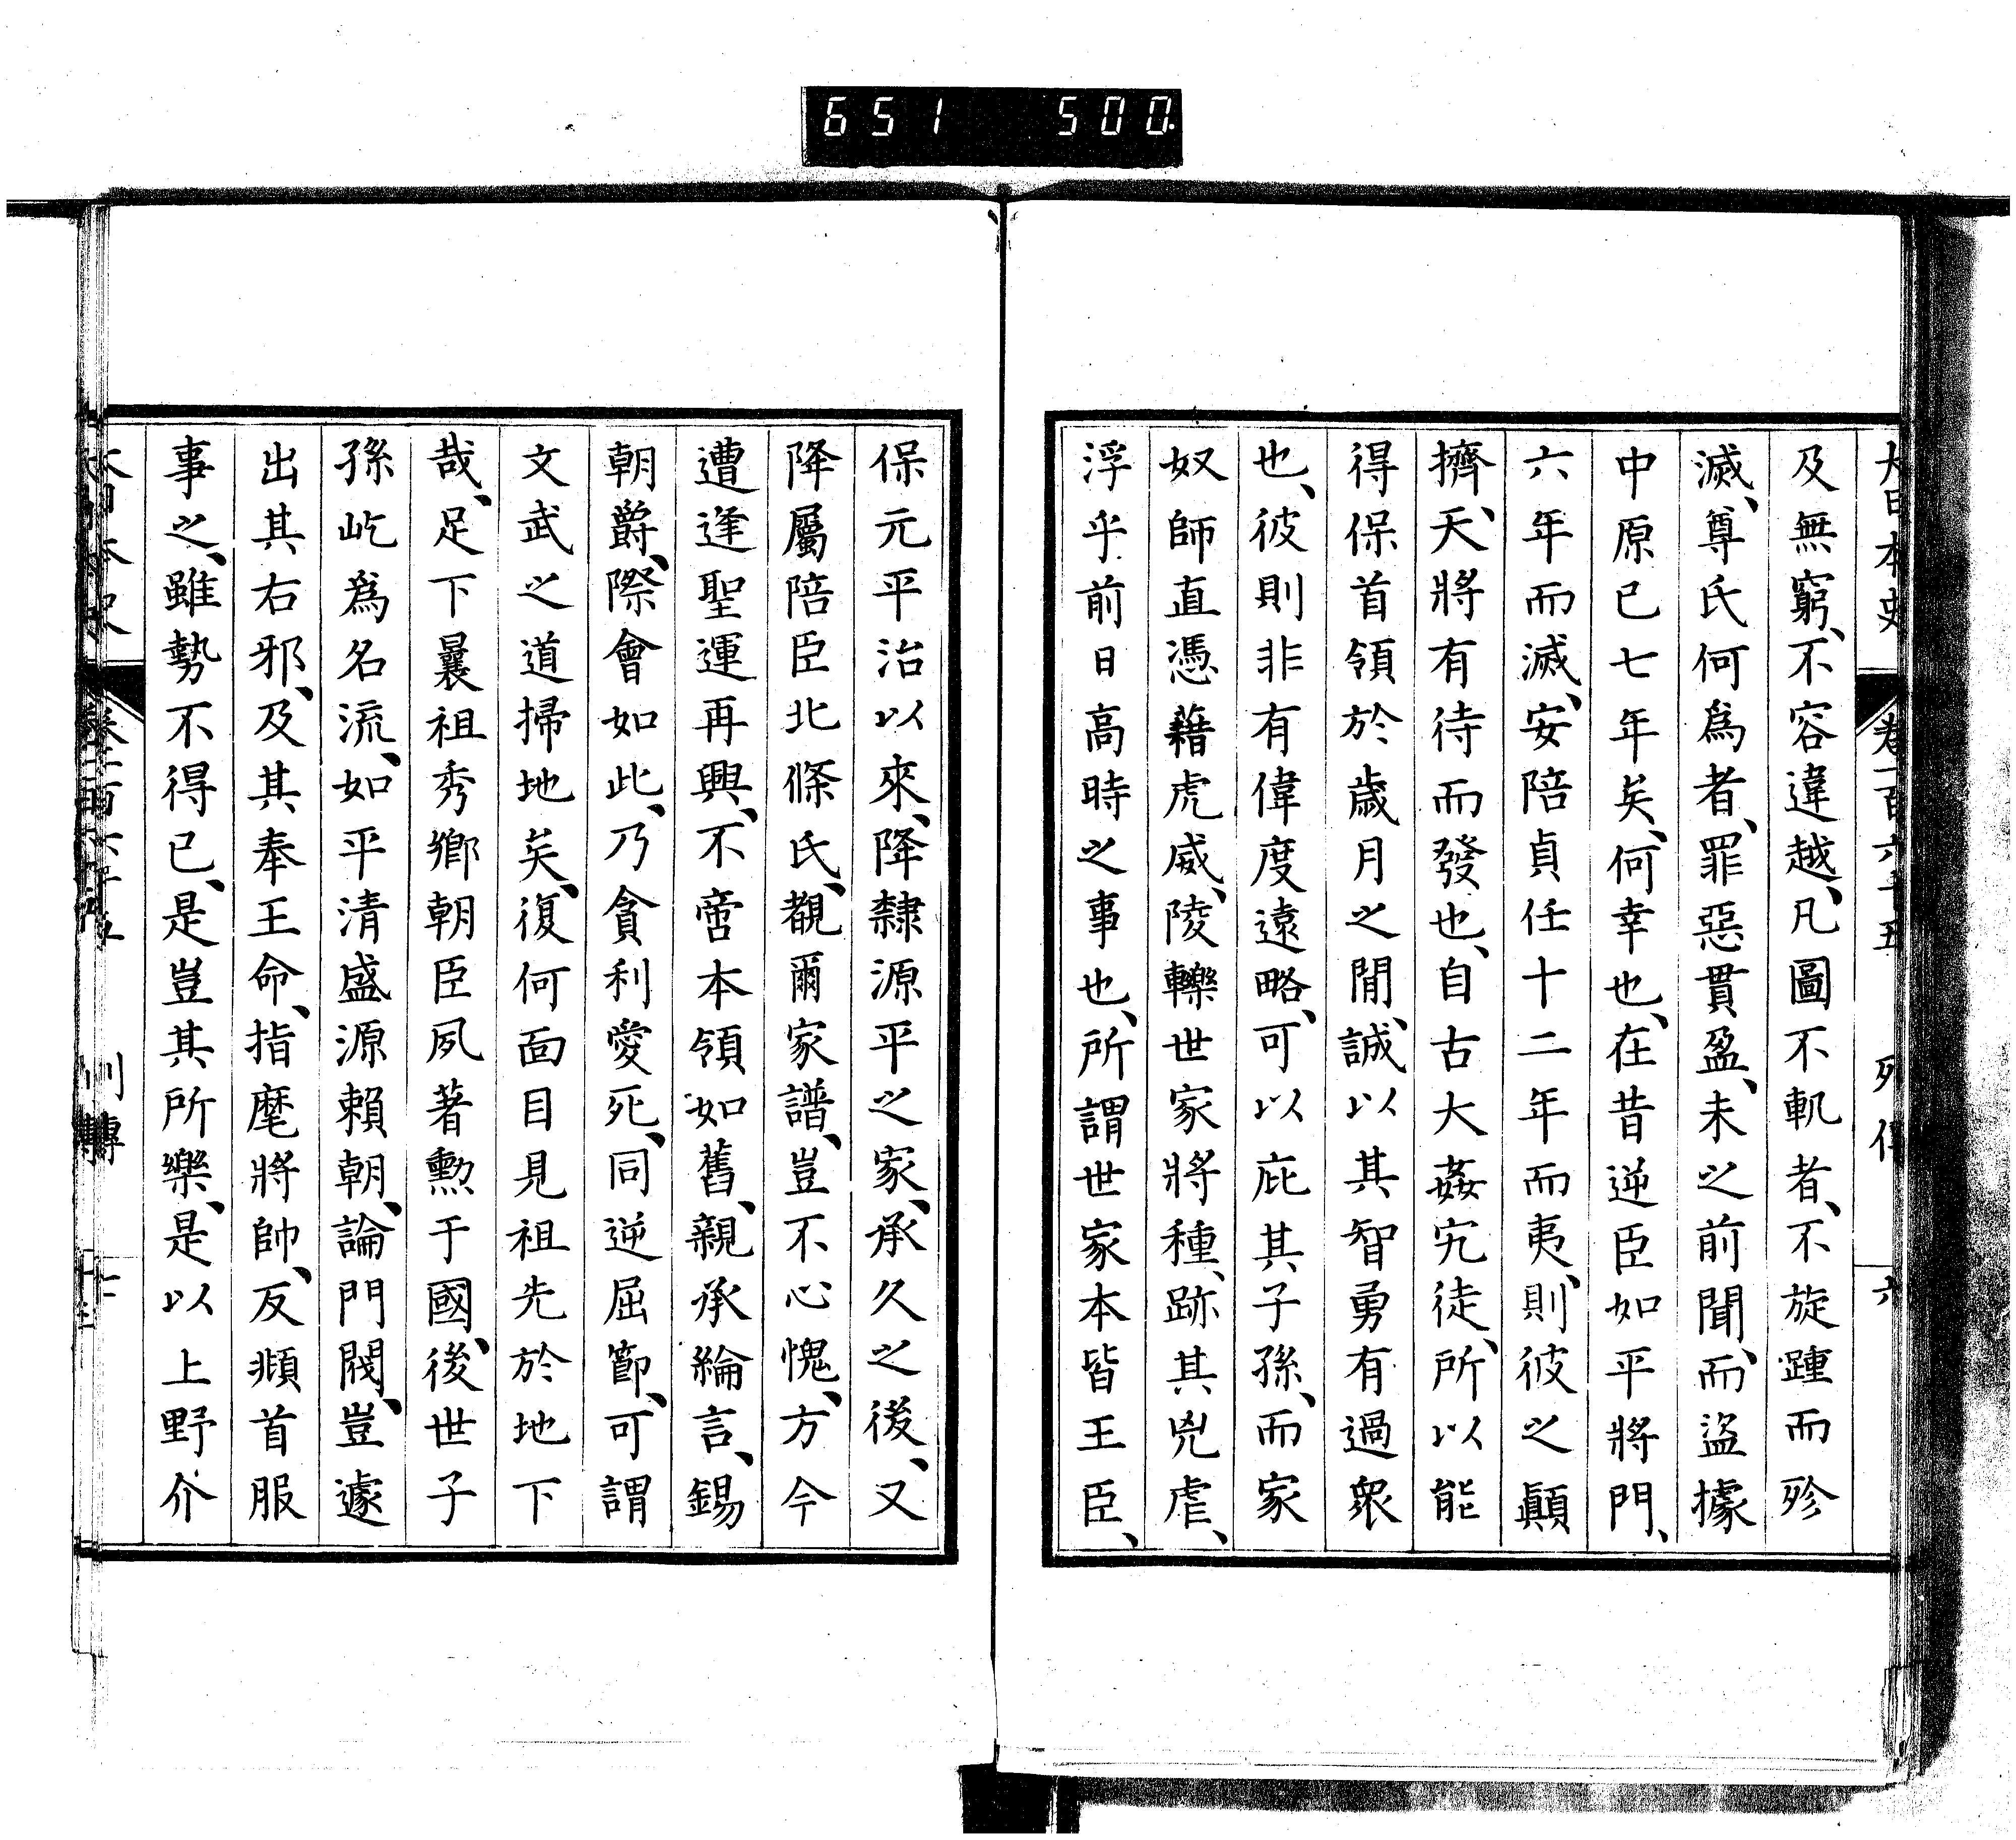 651 500
大日本史 卷一百六十五 列傳 六
及無窮、不容違越、凡圖不軌者、不旋踵而殄
滅、尊氏何爲者、罪惡貫盈、未之前聞、而盜據
中原已七年矣、何幸也、在昔逆臣如平將門、
六年而滅、安陪貞任十二年而夷、則彼之顚
擠、天將有待而發也、自古大姦宄徒、所以能
得保首領於歲月之閒、誠以其智勇有過衆
也、彼則非有偉度遠略、可以庇其子孫、而家
奴師直憑藉虎威、陵轢世家將種、跡其兇虐、
浮乎前日高時之事也、所謂世家本皆王臣、
保元平治以來、降隸源平之家、承久之後、又
降屬陪臣北條氏、覩爾家譜、豈不心愧、方今
遭逢聖運再興、不啻本領如舊、親承綸言、錫
朝爵、際會如此、乃貪利愛死、同逆屈節、可謂
文武之道掃地矣、復何面目見祖先於地下
哉、足下曩祖秀鄉朝臣夙著勲于國、後世子
孫屹爲名流、如平清盛源賴朝、論門閥、豈遽
出其右邪、及其奉王命、指麾將帥、反頫首服
事之、雖勢不得已、是豈其所樂、是以上野介